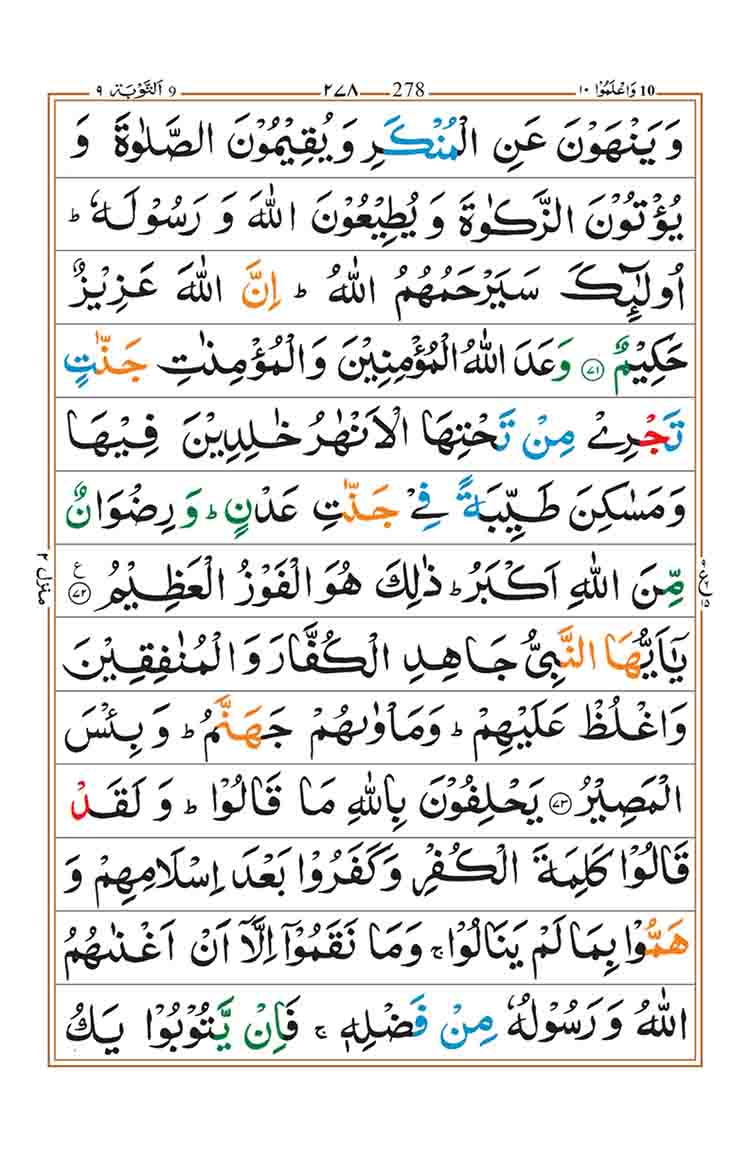 10 وَاعْلَمُوْۤا ١٠ 278 ٢٧٨ 9 اَلتَّوْبَة ٩
وَ يَنْهَوْنَ عَنِ الْمُنْكَرِ وَ يُقِيْمُوْنَ الصَّلٰوةَ وَ
يُؤْتُوْنَ الزَّكٰوةَ وَ يُطِيْعُوْنَ اللّٰهَ وَ رَسُوْلَهٗ ؕ
اُولٰٓىِٕكَ سَيَرْحَمُهُمُ اللّٰهُ ؕ اِنَّ اللّٰهَ عَزِيْزٌ
حَكِيْمٌ ٧١ وَعَدَ اللّٰهُ الْمُؤْمِنِيْنَ وَالْمُؤْمِنٰتِ جَنّٰتٍ
تَجْرِيْ مِنْ تَحْتِهَا الْاَنْهٰرُ خٰلِدِيْنَ فِيْهَا
وَمَسٰكِنَ طَيِّبَةً فِيْ جَنّٰتِ عَدْنٍ ؕ وَ رِضْوَانٌ
مِّنَ اللّٰهِ اَكْبَرُ ؕ ذٰلِكَ هُوَ الْفَوْزُ الْعَظِيْمُ ٧٢ ع
يٰۤاَيُّهَا النَّبِيُّ جَاهِدِ الْكُفَّارَ وَ الْمُنٰفِقِيْنَ
وَاغْلُظْ عَلَيْهِمْ ؕ وَمَاْوٰىهُمْ جَهَنَّمُ ؕ وَ بِئْسَ
الْمَصِيْرُ ٧٣ يَحْلِفُوْنَ بِاللّٰهِ مَا قَالُوْا ؕ وَ لَقَدْ
قَالُوْا كَلِمَةَ الْكُفْرِ وَكَفَرُوْا بَعْدَ اِسْلَامِهِمْ وَ
هَمُّوْا بِمَا لَمْ يَنَالُوْا ۚ وَمَا نَقَمُوْۤا اِلَّاۤ اَنْ اَغْنٰىهُمُ
اللّٰهُ وَ رَسُوْلُهٗ مِنْ فَضْلِهٖ ۚ فَاِنْ يَّتُوْبُوْا يَكُ
منزل ٢